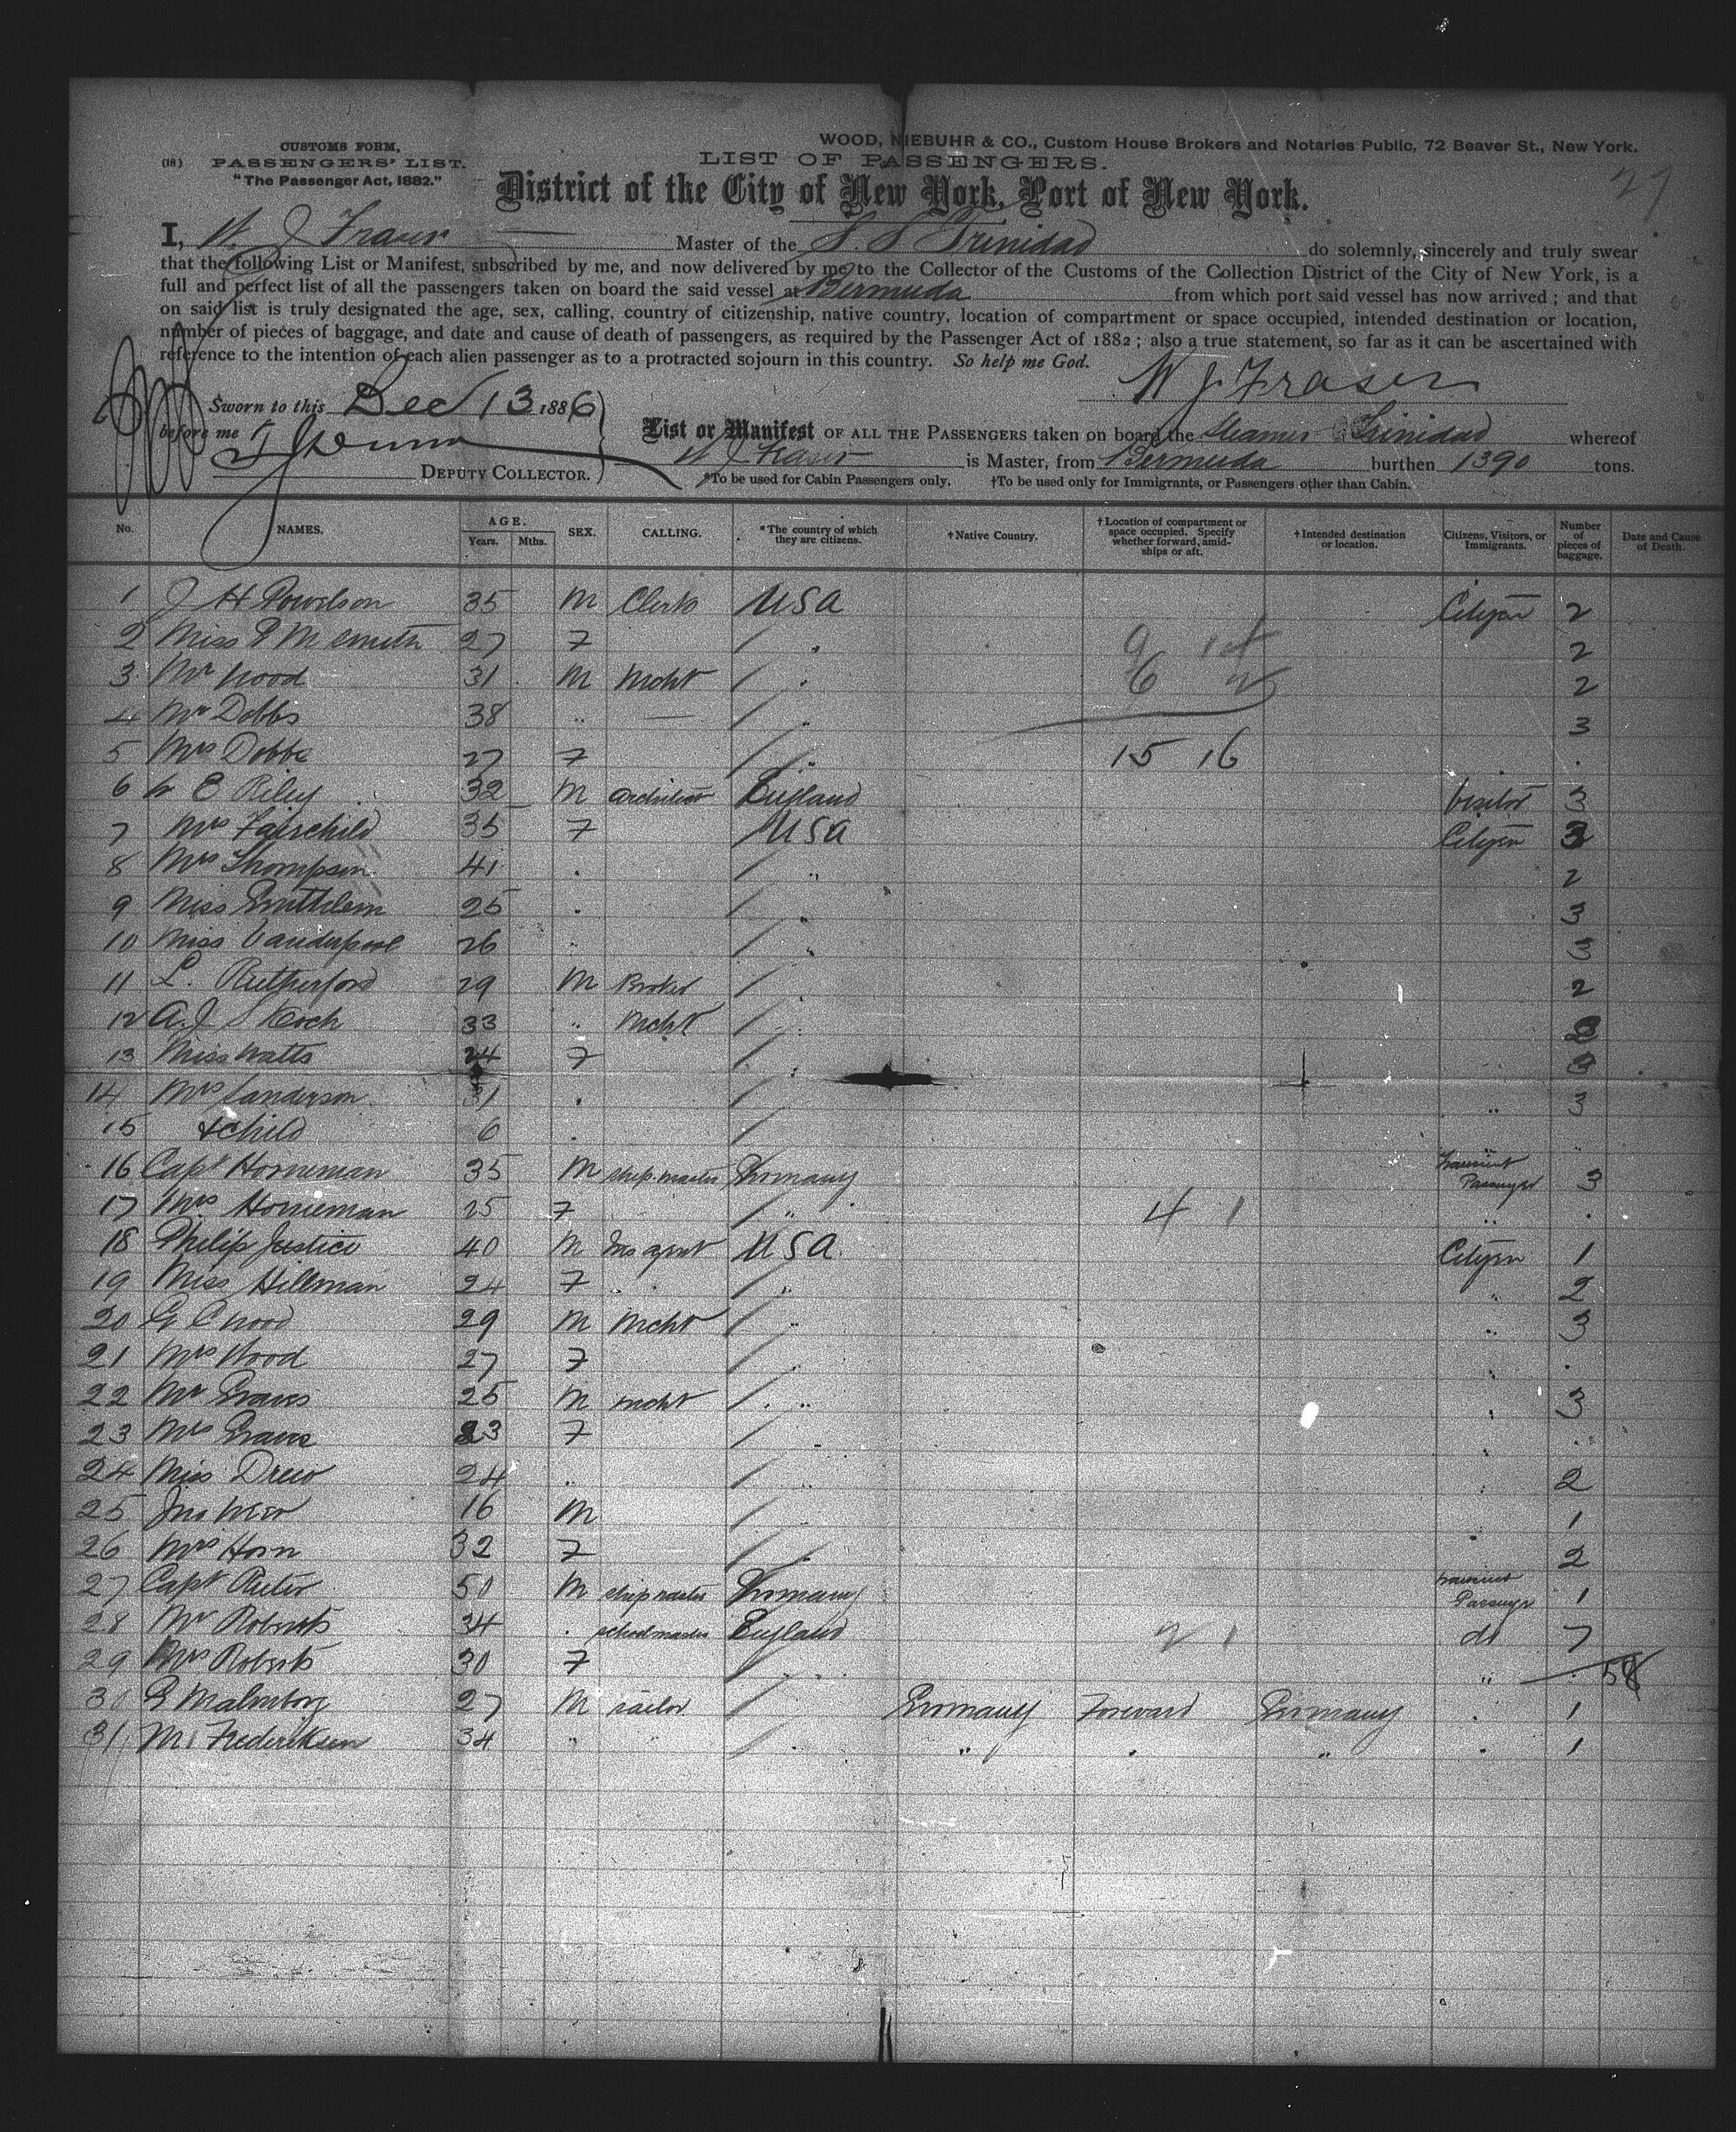 WOOD, NIEBUHR & CO., Custom House Brokers and Notaries Public, 72 Beaver St., New York.
CUSTOMS FORM,
(18) PASSENGERS' LIST.
"The Passenger Act, 1882."
LIST OF PASSENGERS.
27
District of the City of New York, Port of New York.
I, W. J Fraser Master of the S. S Trinidad do solemnly, sincerely and truly swear
that the following List or Manifest, subscribed by me, and now delivered by me to the Collector of the Customs of the Collection District of the City of New York, is a
full and perfect list of all the passengers taken on board the said vessel at Bermuda from which port said vessel has now arrived; and that
on said list is truly designated the age, sex, calling, country of citizenship, native country, location of compartment or space occupied, intended destination or location,
number of pieces of baggage, and date and cause of death of passengers, as required by the Passenger Act of 1882; also a true statement, so far as it can be ascertained with
reference to the intention of each alien passenger as to a protracted sojourn in this country. So help me God.
W J Fraser
Sworn to this Dec 13 1886
before me
DEPUTY COLLECTOR.
List or Manifest OF ALL THE PASSENGERS taken on board the Steamer Trinidad whereof
W J Fraser is Master, from Bermuda burthen 1390 tons.
*To be used for Cabin Passengers only. †To be used only for Immigrants, or Passengers other than Cabin.
No. NAMES. AGE. Years. Mths. SEX. CALLING. *The country of which they are citizens. †Native Country. †Location of compartment or space occupied. Specify whether forward, amidships or aft. †Intended destination or location. Citizens, Visitors, or Immigrants. Number of pieces of baggage. Date and Cause of Death.
1 J H Powelson 35 M Clerk USA Citizen 2
2 Miss P M Smith 27 F " 2
3 Mr Wood 31 M Mcht " 2
4 Mr Dobbs 38 " — " 3
5 Mrs Dobbs 27 F " 15 16
6 W E Riley 32 M Architect England Visitor 3
7 Mrs Fairchild 35 F USA Citizen 3
8 Mrs Thompson 41 " " 2
9 Miss 25 " " 3
10 Miss Vanderpoel 26 " " 3
11 L. Rutherford 29 M Broker " 2
12 A. J S Koch 33 " Mcht "
13 Miss Watts 24 F " 3
14 Mrs 31 " " 3
15 & child 6 "
16 Capt Horneman 35 M ship master Germany Transient Passenger 3
17 Mrs Horneman 25 F " 4 1 "
18 Philip Justice 40 M Ins agent USA Citizen 1
19 Miss Hillman 24 F " " 2
20 G C Wood 29 M Mcht " " 3
21 Mrs Wood 27 F " "
22 Mr Graves 25 M mcht " " 3
23 Mrs Graves 23 F " "
24 Miss Drew 24 " " " 2
25 Jno 16 M " 1
26 Mrs Horn 32 F " " 2
27 Capt Ruter 50 M ship master Germany Transient Passenger 1
28 Mr Roberts 34 " school master England 2 1 do 7
29 Mrs Roberts 30 F " " 58
30 G Malmborg 27 M sailor Germany Forward Germany " 1
31 M Frederiksen 34 " " " " " " 1